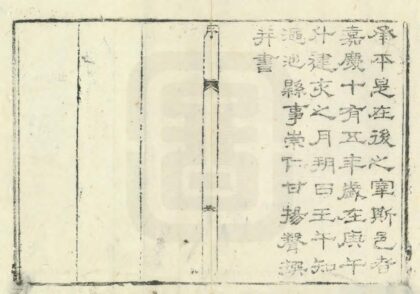 承平是在後之宰斯邑者
嘉慶十有五年歲在庚午
斗建亥之月朔日壬午知
迤縣事崇仁甘揚聲撰
并書
序